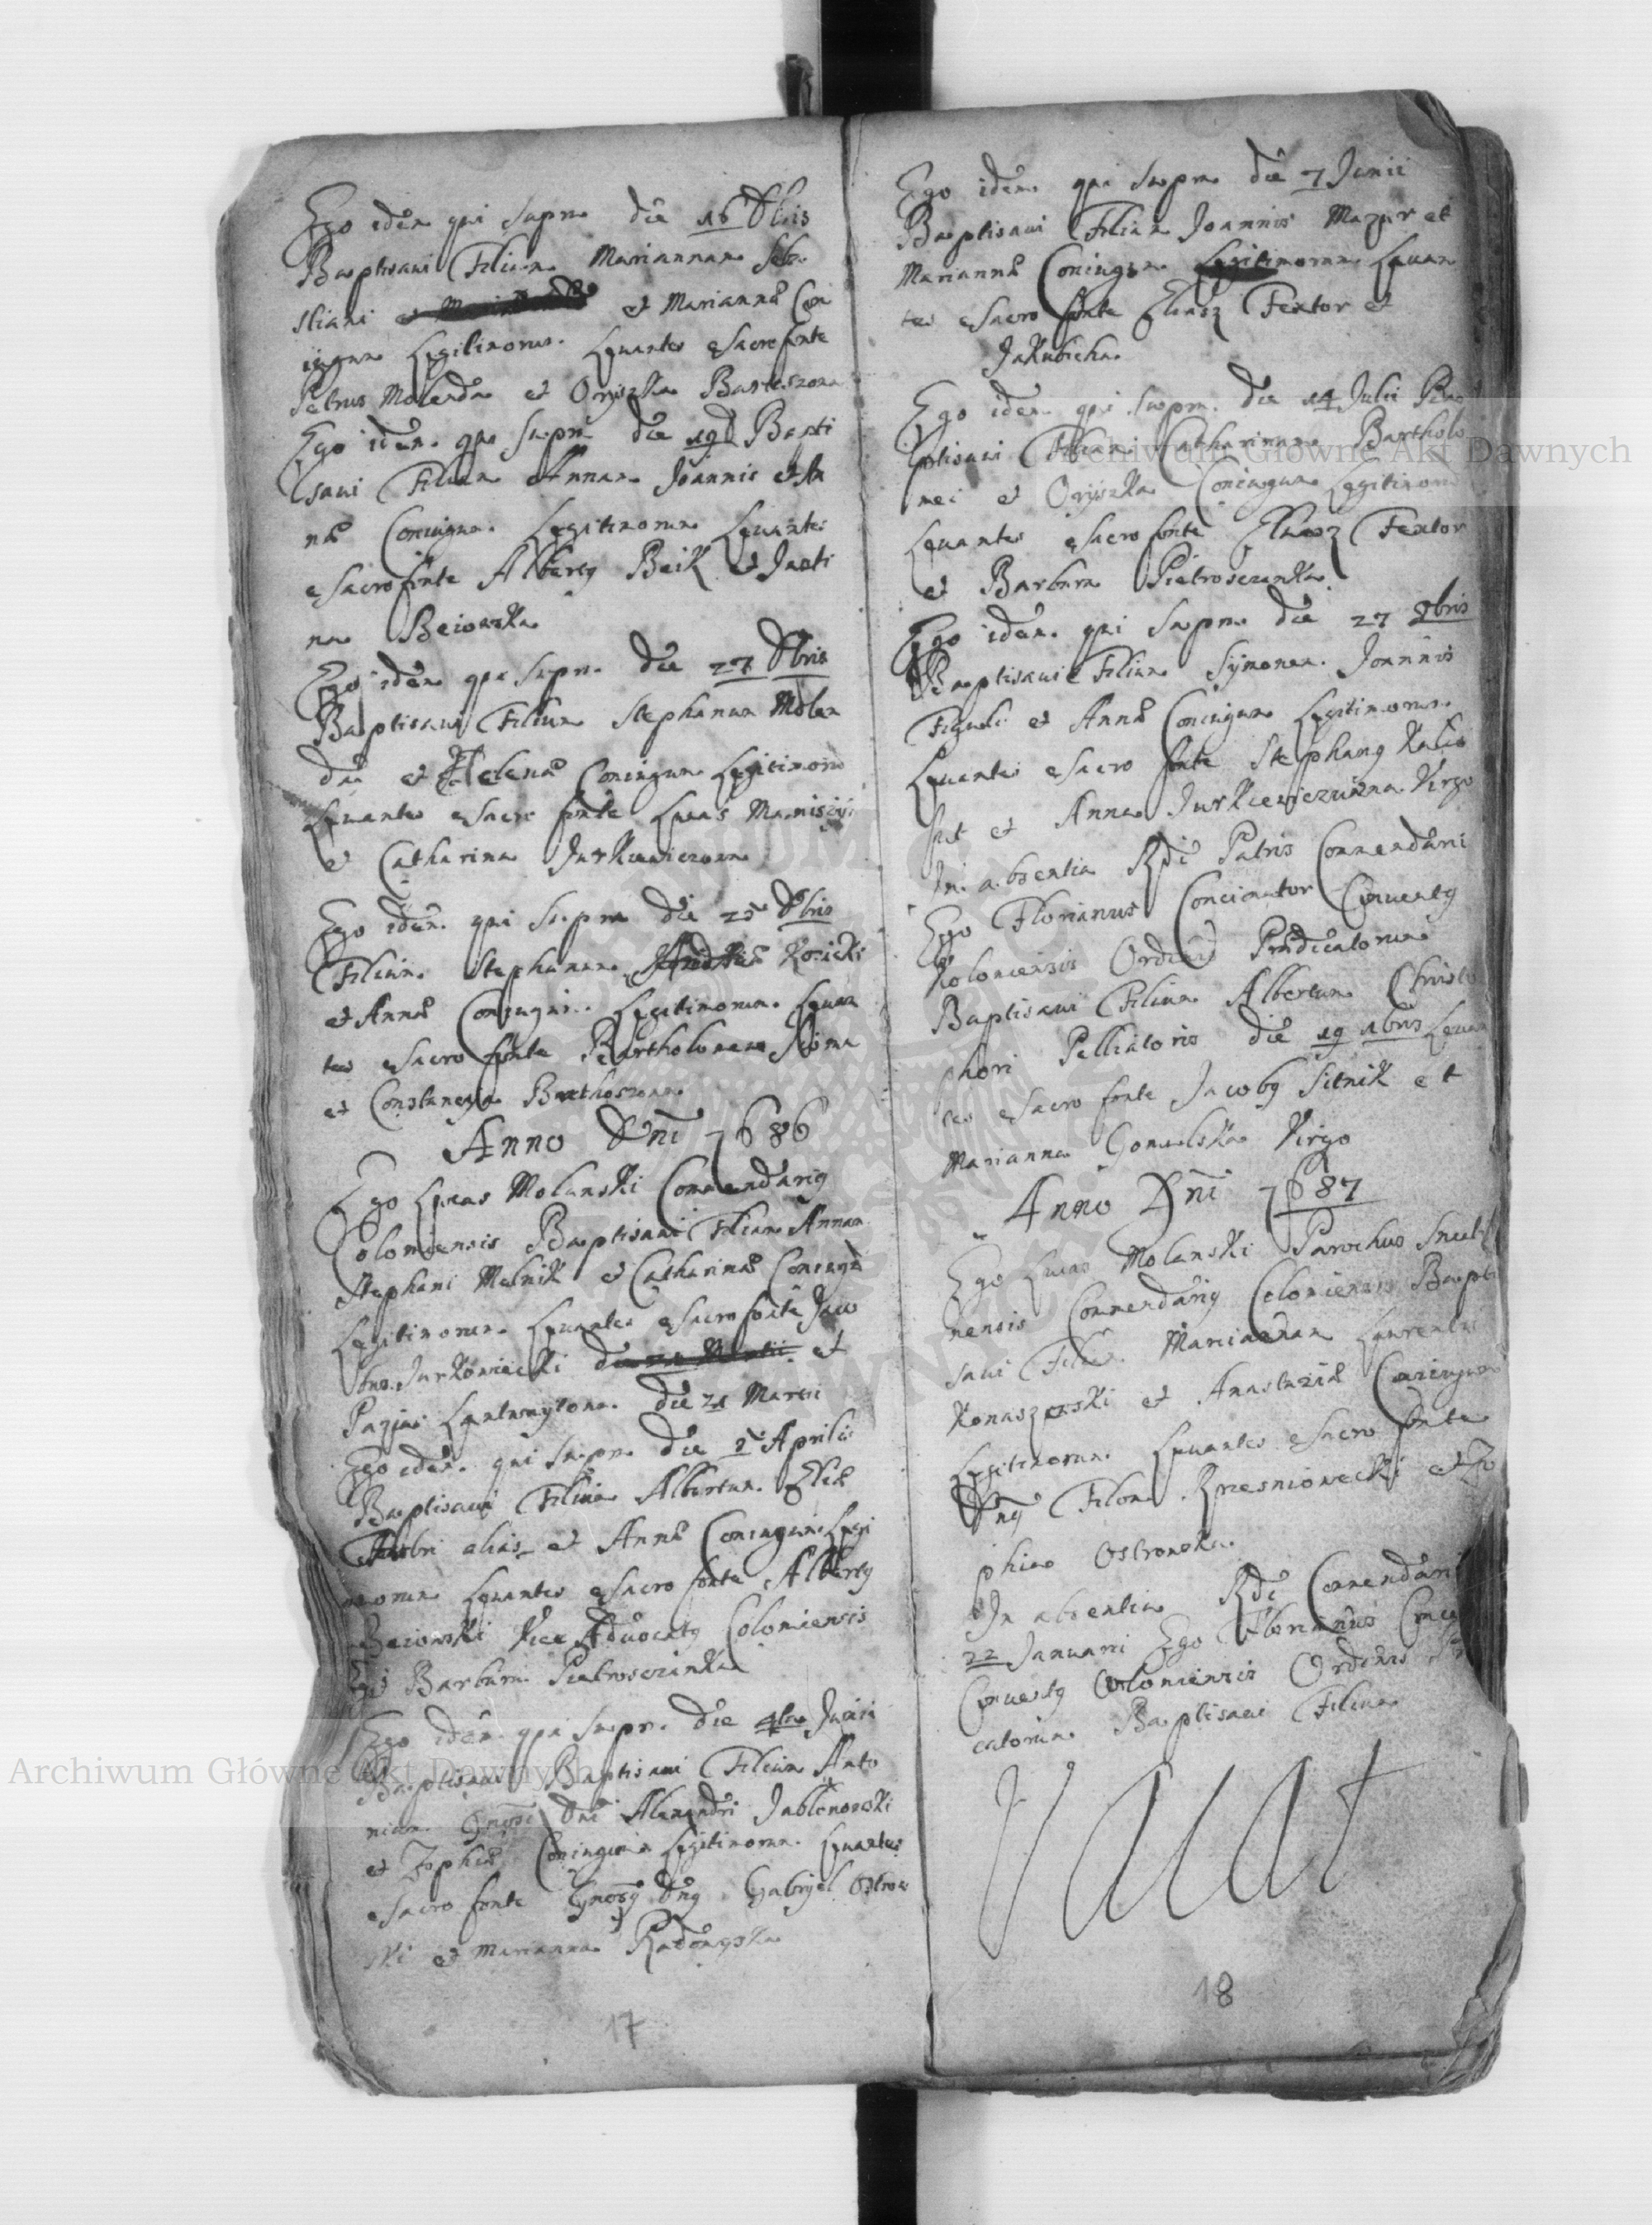 Ego idem qui supra die 16 Xbris
Baptisavi Filiam Mariannam Seba
stiani et Mariannæ Con
iugum Legitimorum. Levantes e Sacro fonte
Petrus Molenda et Oryszka Bartoszowa
Ego idem qui supra die 19 Bapti
savi Filiam Annam Joannis et An
næ Coniugum Legitimorum Levantes
e Sacro fonte Albertg Beik et Justi
na Beiowska
Ego idem qui supra die 27 Xbris
Baptisavi Filium Stephanum Molen
dæ et Helenæ Coniugum Legitimorum
Levantes e Sacro fonte Lucas
et Catharina Jurkiewiczowa
Ego idem qui supra die Xbris
Filium Stephanum Kosicki
et Annæ Coniugum Legitimorum Levan
tes e Sacro fonte Bartholomeus
et Constancya Barthoszowa
Anno Dni 1686
Ego Lucas Molanski Commendarig
Colomiensis Baptisavi Filiam Annam
Stephani Melnik et Catharinæ Coniugum
Legitimorum Levantes e Sacro fonte Jaco
bus Jurkowiecki die Martii et
die 21 Martii
Ego idem qui supra die 2 Aprilis
Baptisavi Filium Albertum Eliæ
Fabri alias et Annæ Coniugum Legi
morum Levantes e Sacro fonte Albertg
Beiowski Vice Advocatg Colomiensis
Et Barbara Pietroszczanka
Ego idem qui supra die 4ta Junii
Baptisavi Baptisavi Filium Anto
nium Gnosi Dni Alexandri Jablonowski
et Zophiæ Coniugum Legitimorum Levantes
e Sacro fonte Gnosg Dng Gabryel Ostrow
ski et Marianna Radonyska
17
Ego idem qui supra die 7 Junii
Baptisavi Filiam Joannis Mazur et
Mariannæ Coniugum Legitimorum Levan
tes e Sacro fonte Eliasz Textor et
Jakubicha
Ego idem qui supra die 14 Julii Ba
ptisavi Filiam Catharinam Bartholo
mei et Oryszka Coniugum Legitimorum
Levantes e Sacro fonte Eliasz Textor
et Barbara Pietroszczanka
Ego idem qui supra die 27 8bris
Baptisavi Filium Symonem Joannis
Figuli et Annæ Coniugum Legitimorum
Levantes e Sacro fonte Stephang
et Anna Jurkiewiczuwna Virgo
In absentia Rdi Patris Commendarii
Ego Florianus Concionator Conventg
Kolomiensis Ordinis Prædicatorum
Baptisavi Filium Albertum Christo
phori Pelliatoris die 19 Levan
tes e Sacro fonte Jacobg Sitnik et
Marianna Virgo
Anno Dni 1687
Ego Lucas Molanski Parochus
nensis Commendarig Colomiensis Bapti
savi Filiam Mariannam Laurentii
Konaszewski et Anastaziæ Coniugum
Legitimorum Levantes e Sacro fonte
Dng Filon Krzesniowecki et Zo
phia Ostrowska
In absentia Rdi Commendarii
22 Januarii Ego Florianus
Conventg Colomiensis Ordinis
catorum Baptisavi Filium
Vacat
18
Archiwum Główne Akt Dawnych
Archiwum Główne Akt Dawnych